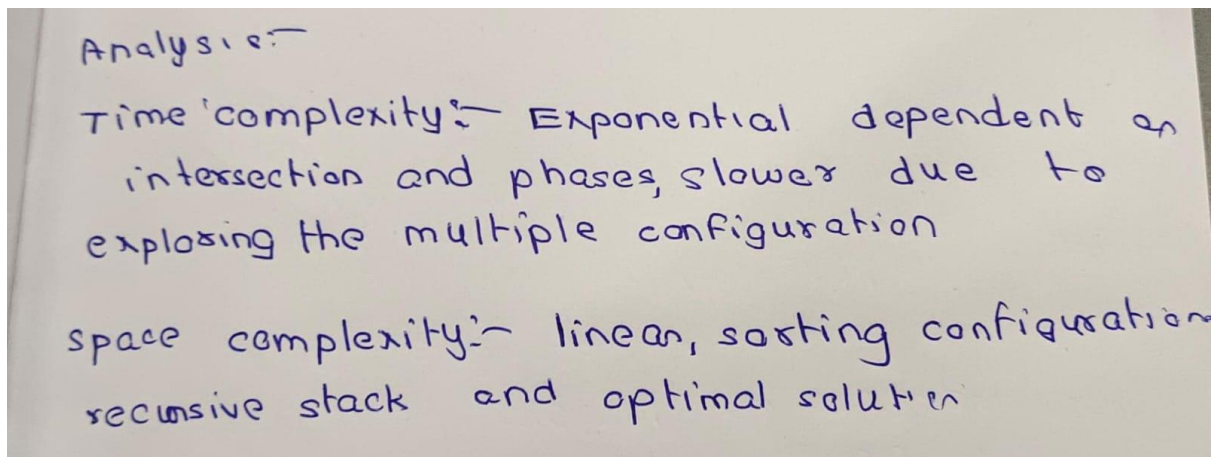 Analysis:-
Time complexity:- Exponential dependent on
intersection and phases, slower due to
exploring the multiple configuration
space complexity:- linear, sorting configuration
recursive stack and optimal solution